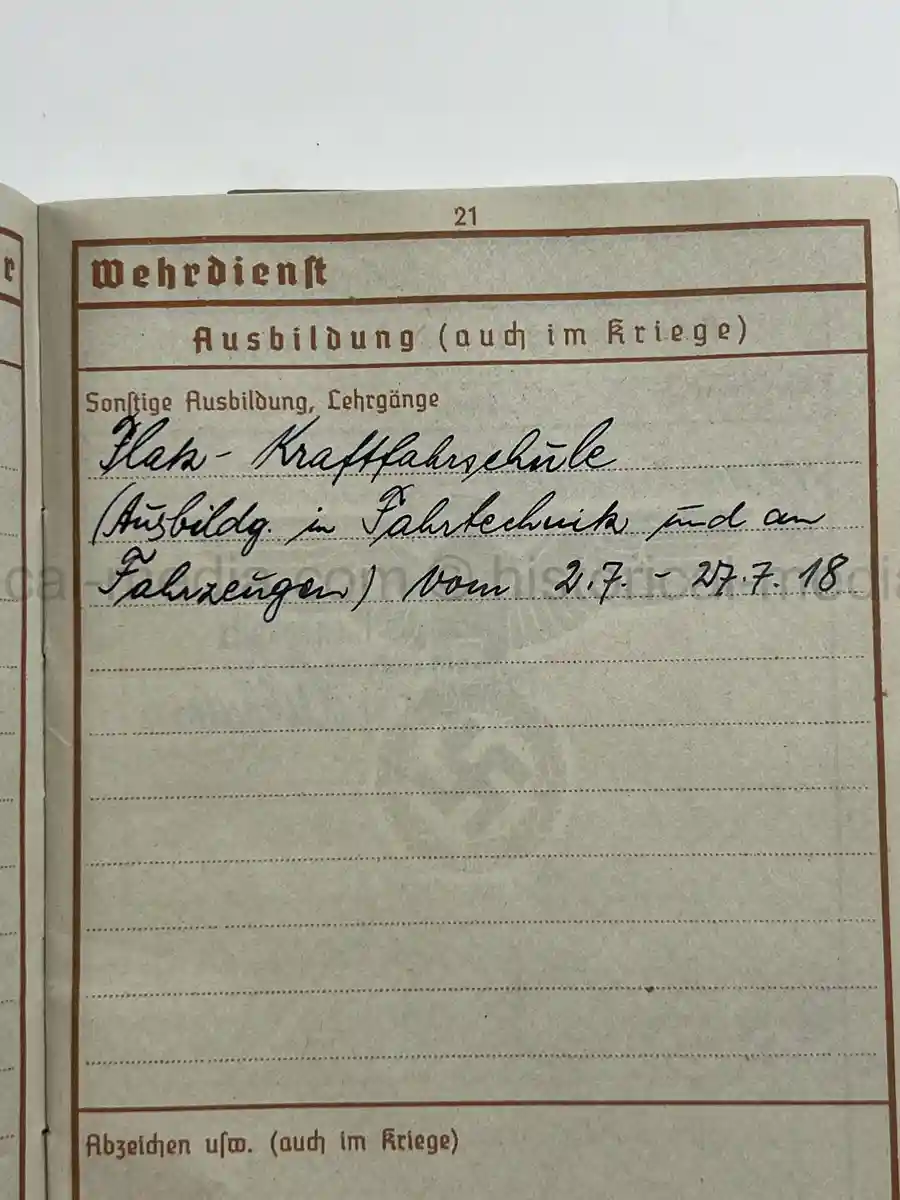 21
r
Wehrdienst
Ausbildung (auch im Kriege)
Sonstige Ausbildung, Lehrgänge
Flak - Kraftfahrschule
(Ausbildg. in Fahrtechnik und an
Fahrzeugen) vom 2.7. - 27.7. 18
cal-media.com © historical-media
Abzeichen usw. (auch im Kriege)